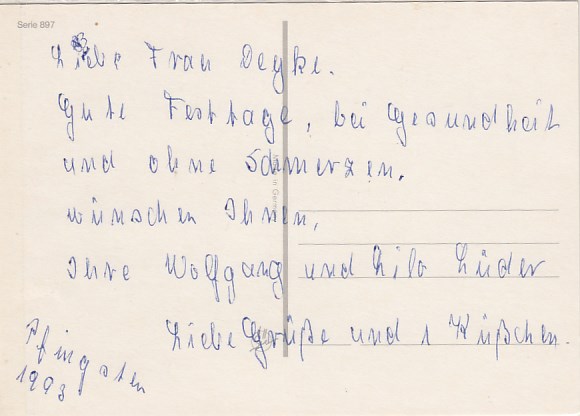 Serie 897
Liebe Frau Deyke.
Gute Festtage, bei Gesundheit
und ohne Schmerzen.
wünschen Ihnen,
Ihre Wolfgang und Lilo Lüder
Liebe Grüße und 1 Küßchen.
Pfingsten
1993